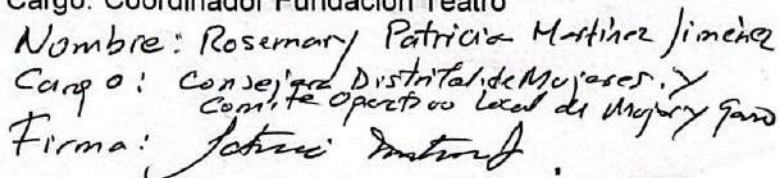 Cargo: Coordinador Fundación Teatro
Nombre: Rosemary Patricia Martínez Jiménez
Cargo: Consejera Distrital de Mujeres. y
Comite Operativo Local de Mujer y
Firma: